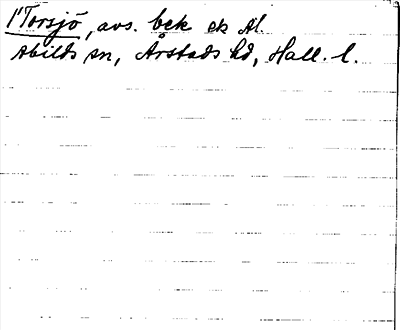 1' Torsjö, avs. bek ek Al.
Abilds sn, Årstads hd, Hall. l.